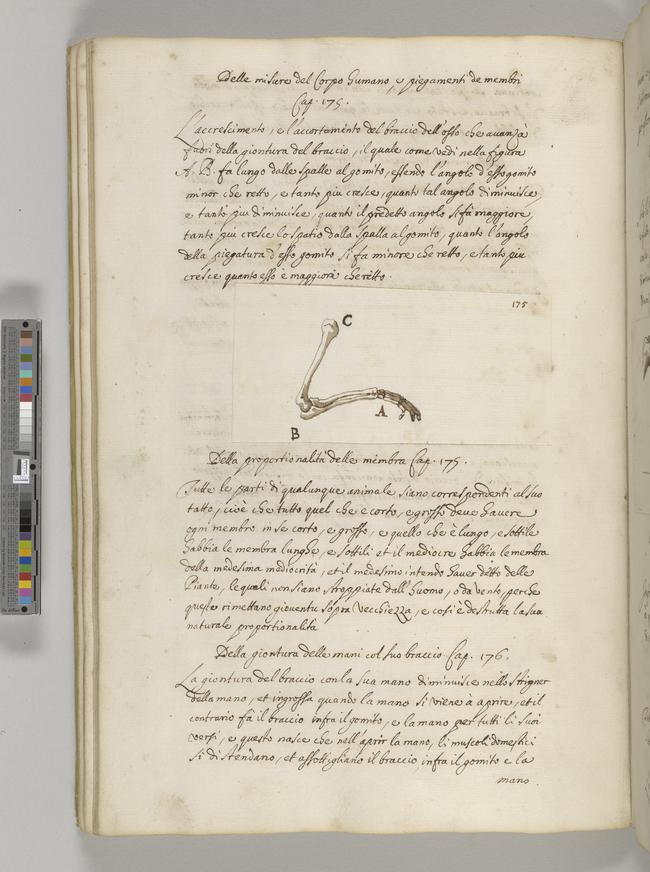 Delle misure del Corpo humano, e piegamenti de membri
Cap. 175.
L'accrescimento, e l'accortamento del braccio dell'osso che auanza
fuori della giontura del braccio, il quale come vedi nella figura
A. B. fa lungo dalle spalle al gomito, essendo l'angolo d'esso gomito
minor che retto, e tanto piu cresce, quanto tal angolo diminuisce,
e tanto piu diminuisce, quanto il predetto angolo si fà maggiore,
tanto piu cresce lo spatio dalla spalla al gomito, quanto l'angolo
della piegatura d'esso gomito si fa minore che retto, e tanto piu
cresce quanto esso è maggiore che retto.
175
C
A
B
Della proportionalità delle membra Cap. 175.
Tutte le parti di qualunque animale siano correspondenti al suo
tutto, cioè che tutto quel che è corto, e grosso deue hauere
ogni membro in se corto, e grosso, e quello che è lungo, e sottile
habbia le membra lunghe, e sottili et il mediocre habbia le membra
della medesima mediocrità, et il medesimo intendo hauer detto delle
Piante, le quali non siano stroppiate dall'huomo, o da vento, perche
queste rimettano giouentu sopra vecchiezza, e cosi è destrutta la sua
naturale proportionalità
Della giontura delle mani col suo braccio Cap. 176.
La giontura del braccio con la sua mano diminuisce nello strigner
della mano, et ingrossa quando la mano si viene à aprire, et il
contrario fà il braccio infra il gomito, e la mano per tutti li suoi
versi, e questo nasce che nell'aprir la mano, li muscoli domestici
si distendano, et assottigliano il braccio infra il gomito e la
mano